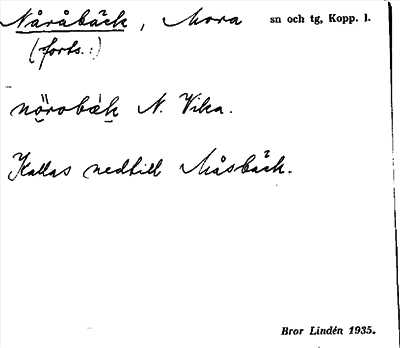 Nåråbäck, Mora sn och tg, Kopp. l.
(forts.:)
nörobäk N. Vika.
Kallas nedtill Måsbäck.
Bror Lindén 1935.